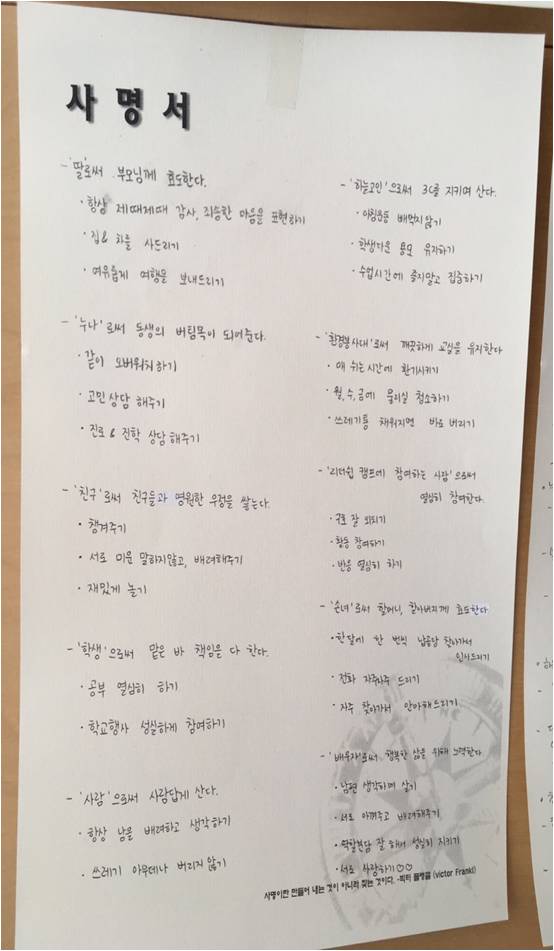 사명서
- '딸'로써 부모님께 효도한다.
· 항상 제때제때 감사, 죄송한 마음을 표현하기
· 집 & 차를 사드리기
· 여유롭게 여행을 보내드리기
- '누나'로써 동생의 버팀목이 되어준다.
· 같이 오버워치하기
· 고민 상담 해주기
· 진로 & 진학 상담 해주기
- '친구'로써 친구들과 영원한 우정을 쌓는다.
· 챙겨주기
· 서로 미운 말하지않고, 배려해주기
· 재밌게 놀기
- '학생'으로써 맡은 바 책임을 다 한다.
· 공부 열심히 하기
· 학교행사 성실하게 참여하기
- '사람'으로써 사람답게 산다.
· 항상 남을 배려하고 생각하기
· 쓰레기 아무데나 버리지 않기
- '하늘고인'으로써 3C를 지키며 산다.
· 아침운동 빼먹지 않기
· 학생다운 용모 유지하기
· 수업시간에 졸지말고 집중하기
- '환경봉사대'로써 깨끗하게 교실을 유지한다
· 매 쉬는시간에 환기시키기
· 월, 수, 금에 청소하기
· 쓰레기통 채워지면 바로 버리기
- '리더쉽 캠프에 참여하는 사람'으로써
열심히 참여한다.
· 구호 잘 외치기
· 활동 참여하기
· 반응 열심히 하기
- '손녀'로써 할머니, 할아버지께 효도한다
· 한달에 한 번씩 납골당 찾아가서
인사드리기
· 전화 자주자주 드리기
· 자주 찾아가서 안마해드리기
- '배우자'로써 행복한 삶을 위해 노력한다
· 남편 생각하며 살기
· 서로 아껴주고 배려해주기
· 역할분담 잘 해서 성실히 지키기
· 서로 사랑하기♡♡
사명이란 만들어 내는 것이 아니라 찾는 것이다. -빅터 플랭클 (victor Frankl)